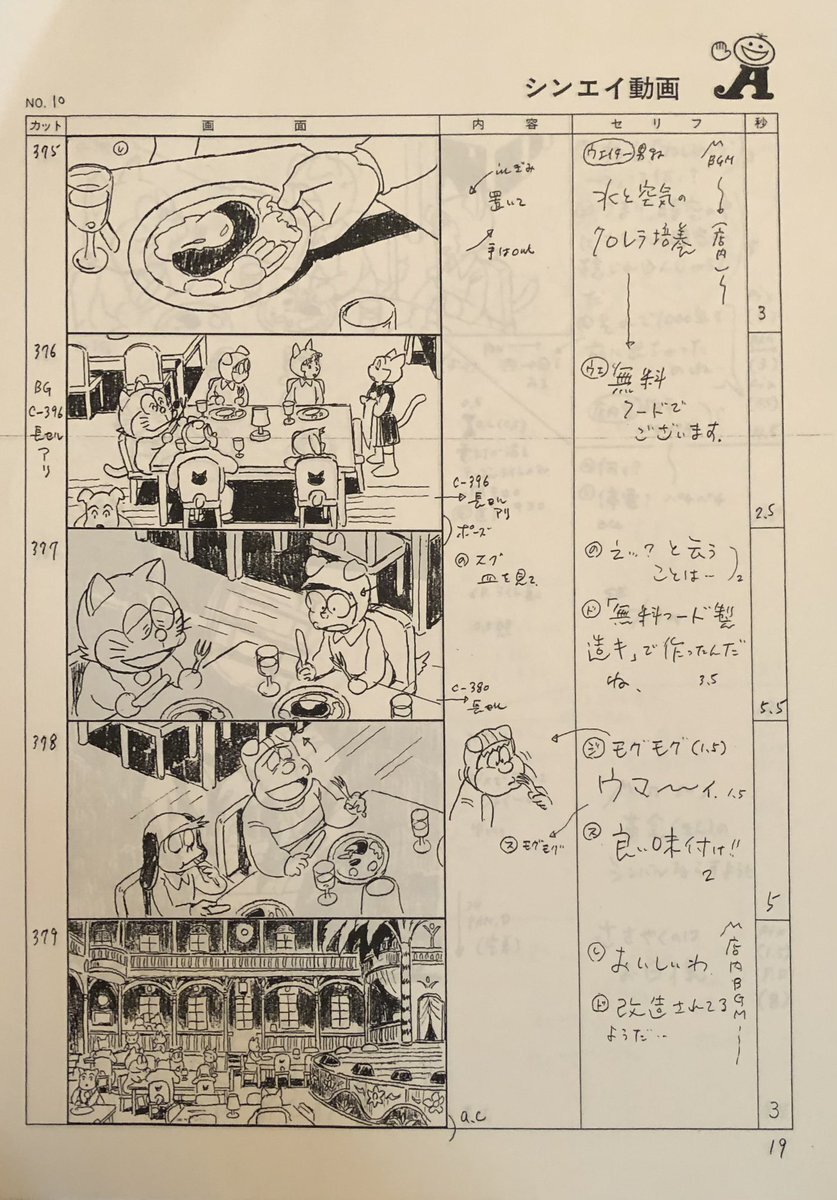 シンエイ動画
NO. 10
カット 画面 内容 セリフ 秒
375
し
inします
置いて
手はout
ウエイター
BGM
水と空気の
クロレラ培養
(店内)
3
376
BG
C-396
長セル
アリ
C-396
長セル
アリ
ウエ 無料
フードで
ございます。
2.5
377
ポーズ
の スグ
皿を見て
C-380
長セル
の えっ?と云う
ことは‥
2
ド「無料フード製
造キ」で作ったんだ
ね、 3.5
5.5
378
ジ モグモグ(1.5)
ウマ〜〜イ. 1.5
ス モグモグ
ス 良い味付け!!
2
5
379
し おいしいわ
店内BGM
ド 改造されてる
ようだ‥
a.c
3
19